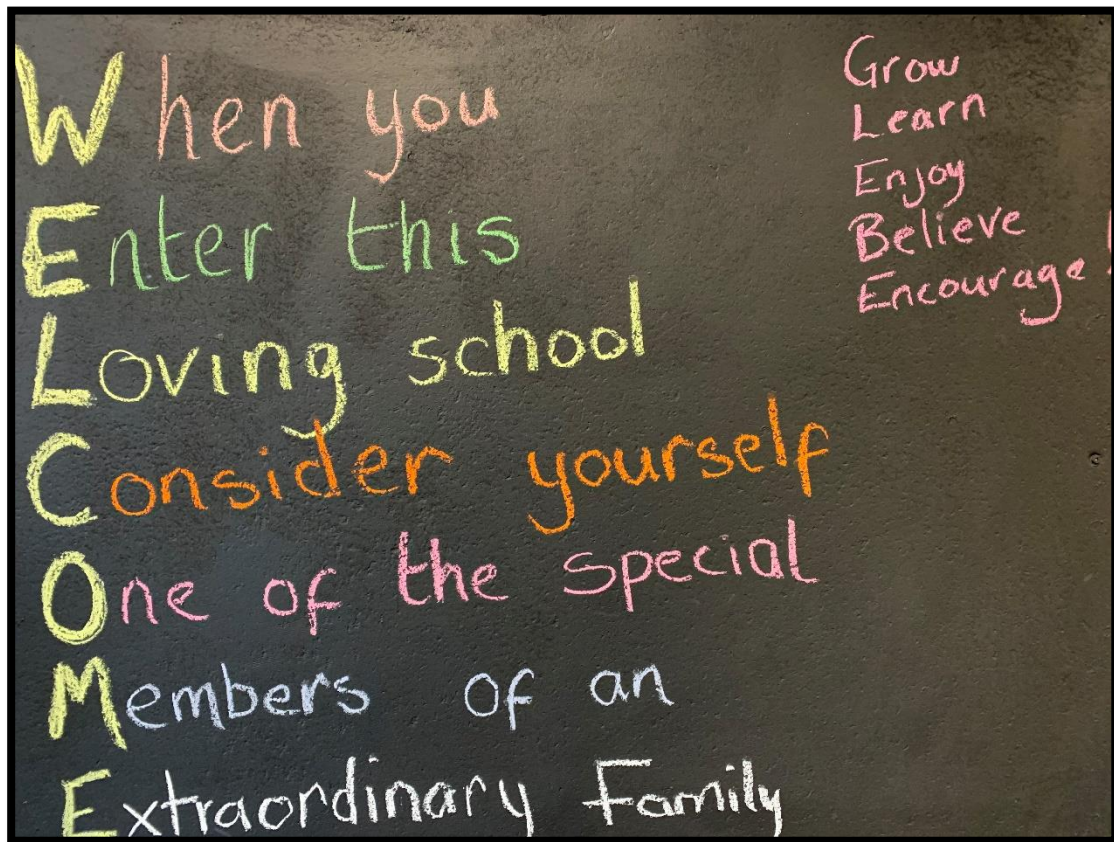 When you
Enter this
Loving school
Consider yourself
One of the special
Members of an
Extraordinary Family
Grow
Learn
Enjoy
Believe
Encourage